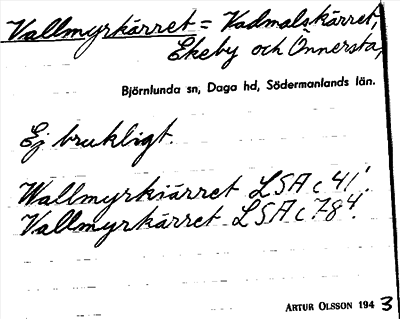 Vallmyrkärret = Vadmalskärret,
Ekeby och Önnersta,
Björnlunda sn, Daga hd, Södermanlands län.
Ej brukligt.
Wallmyrkiärret LSA c 41¹.
Vallmyrkärret LSA c 78⁴.
ARTUR OLSSON 1943